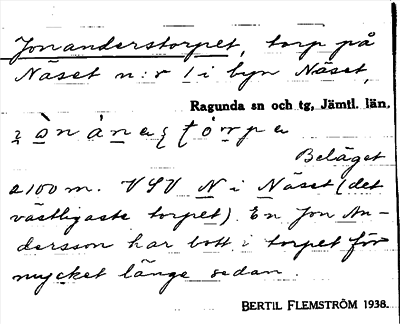 Jonanderstorpet, torp på
Näset n:r 1 i byn Näset,
Ragunda sn och tg, Jämtl. län.
Beläget
2100 m. VSV N i Näset (det
västligaste torpet). En Jon An-
dersson har bott i torpet för
mycket länge sedan.
BERTIL FLEMSTRÖM 1938.